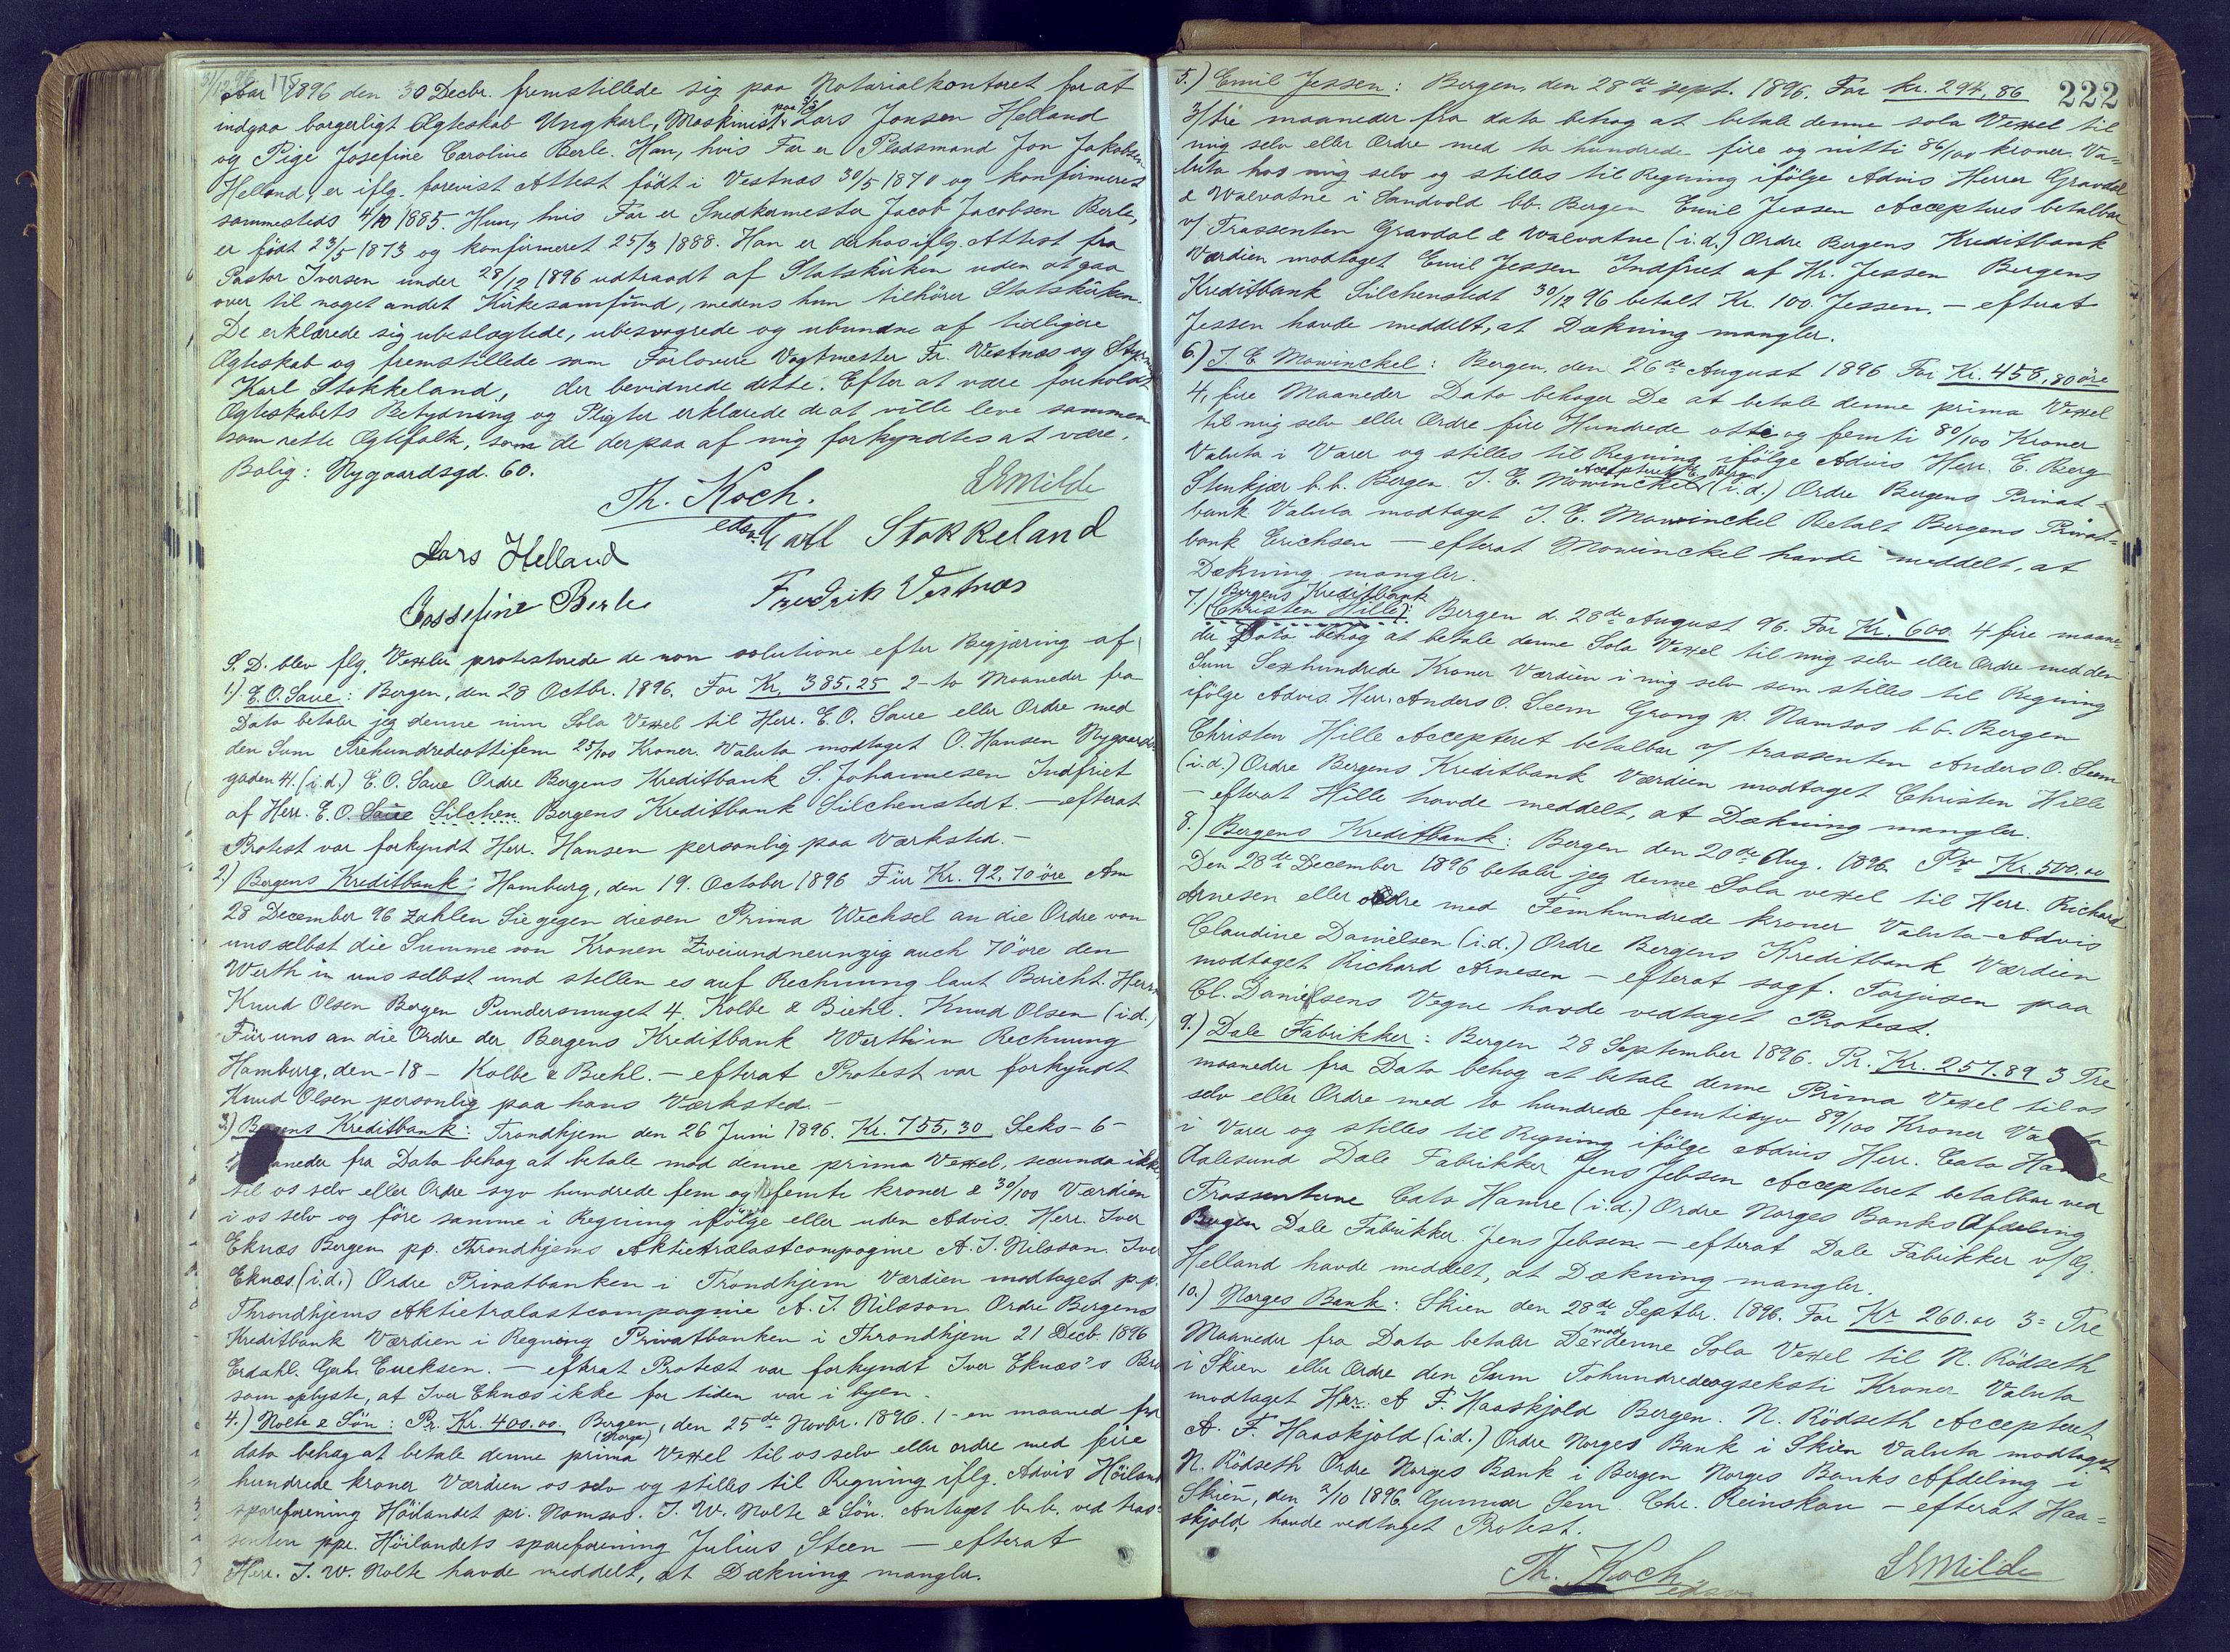 31/12 96. 178
Aar 1896 den 30 Decbr. fremstillede sig paa Notarialkontoret for at
indgaa borgerligt Ægteskab Ungkarl, Maskinist paa D/S Lars Jonsen Helland
og Pige Josefine Caroline Berle. Han, hvis Far er Pladsmand Jon Jakobsen
Helland, er iflg. forevist Attest født i Vestnæs 30/5 1870 og konfirmeret
sammesteds 4/10 1885. Hun, hvis Far er Snedkermester Jacob Jacobsen Berle,
er født 23/5 1873 og konfirmeret 25/3 1888. Han er derhos iflg. Attest fra
Pastor Iversen under 28/12 1896 udtraadt af Statskirken uden at gaa
over til noget andet Kirkesamfund, medens hun tilhører Statskirken.
De erklærede sig ubeslægtede, ubesvogrede og ubundne af tidligere
Ægteskab og fremstillede som Forlovere Vagtmester Fr. Vestnæs og
Karl Stokkeland, der bevidnede dette. Efter at være foreholdt
Ægteskabets Betydning og Pligter erklærede de at ville leve sammen
som rette Ægtefolk, som de derpaa af mig forkyndtes at være.
Bolig: Nygaardsgd. 60.
Th. Koch. SMilde
edsv. Karl Stokkeland
Lars Helland
Jossefine Berle Fredrik Vestnæs
S. D. blev flg. Vexler protesterede de non solutione efter Begjæring af
1.) E. O. Saue: Bergen, den 28 Octbr. 1896. For Kr. 385.25 2-to Maaneder fra
Dato betaler jeg denne min Sola Vexel til Herr. E. O. Saue eller Ordre med
den Sum Trehundredeottifem 25/100 Kroner. Valuta modtaget O. Hansen Nygaards-
gaden 41. (i.d.) E. O. Saue Ordre Bergens Kreditbank S. Johannesen Indfriet
af Herr. E. O. Saue Silchen Bergens Kreditbank Silchenstedt. — efterat
Protest var forkyndt Herr. Hansen personlig paa Værksted. —
2.) Bergens Kreditbank: Hamburg, den 19. October 1896 Für Kr. 92,70 öre Am
28 December 96 zahlen Sie gegen diesen Prima Wechsel an die Ordre von
uns selbst die Summe von Kronen Zweiundneunzig auch 70 öre den
Werth in uns selbst und stellen es auf Rechnung laut Bericht. Herrn
Knud Olsen Bergen Pundersmuget 4. Kolbe & Biehl. Knud Olsen (i.d.)
Für uns an die Ordre der Bergens Kreditbank Werth in Rechnung
Hamburg, den -18- Kolbe & Biehl. — efterat Protest var forkyndt
Knud Olsen personlig paa hans Værksted. —
3.) Bergens Kreditbank: Trondhjem den 26 Juni 1896. Kr. 755,30 Seks -6-
Maaneder fra Dato behag at betale mod denne prima Vexel, secunda ikke,
til os selv eller Ordre syv hundrede fem og femti kroner & 30/100 Værdien
i os selv og före samme i Regning ifölge eller uden Advis. Herr. Iver
Eknæs Bergen pp. Throndhjems Aktietrælastcompagnie A. J. Nilsson. Iver
Eknæs. (i.d.) Ordre Privatbanken i Trondhjem Værdien modtaget pp.
Throndhjems Aktietrælastcompagnie A. J. Nilsson Ordre Bergens
Kreditbank Værdien i Regning Privatbanken i Throndhjem 21 Decb. 1896
Erdahl. Gerh. Encksen. — efterat Protest var forkyndt Iver Eknæs's
som oplyste, at Iver Eknæs ikke for tiden var i byen. —
4.) Nolte & Sön: Pr. Kr. 400.00. Bergen (Norge), den 25de Novbr. 1896. 1- en maaned fra
dato behag at betale denne prima Vexel til os selv eller ordre med fire
hundrede kroner Værdien os selv og stilles til Regning iflg. Advis Höiland
spareforening Höilandet pr. Namsos. J. W. Nolte & Sön. Antaget b.b. ved tras-
senten ppr. Höilandets spareforening Julius Steen — efterat
Herr. J. W. Nolte havde meddelt, at Dækning mangler.
222
5.) Emil Jessen: Bergen, den 28de sept. 1896. For kr. 294,86
3/tre maaneder fra dato behag at betale denne sola Vexel til
mig selv eller Ordre med to hundrede fire og nitti 86/100 kroner. Va-
luta hos mig selv og stilles til Regning ifölge Advis Herrer Gravdal
& Walvatne i Sandvold bb. Bergen Emil Jessen Accepteres betalbar
v/ Trassenten Gravdal & Walvatne (i.d.) Ordre Bergens Kreditbank
Værdien modtaget Emil Jessen Indfriet af Hr. Jessen Bergens
Kreditbank Silchenstedt 30/12 96 betalt Kr. 100 Jessen. — efterat
Jessen havde meddelt, at Dækning mangler.
6.) J. E. Mowinckel: Bergen, den 26de August 1896 For Kr. 458,80 öre
4, fire Maaneder Dato behager De at betale denne prima Vexel
til mig selv eller Ordre fire Hundrede otte og femti 80/100 Kroner
Valuta i Varer og stilles til Regning ifölge Advis Herr. E. Berg
Stenkjær b.b. Bergen. J. E. Mowinckel Accepteret E. Berg (i.d.) Ordre Bergens Privat-
bank Valuta modtaget J. E. Mowinckel Betalt Bergens Privat-
bank Erichsen — efterat Mowinckel havde meddelt, at
Dækning mangler.
7.) Bergens Kreditbank (Christen Hille): Bergen d. 28de August 96. For Kr. 600. 4 fire maane-
der Dato behag at betale denne Sola Vexel til mig selv eller Ordre med den
Sum Sexhundrede Kroner Værdien i mig selv som stilles til Regning
ifölge Advis. Herr. Anders O. Seem Grong p. Namsos b.b. Bergen
Christen Hille Accepteret betalbar v/ trassenten Anders O. Seem
(i.d.) Ordre Bergens Kreditbank Værdien modtaget Christen Hille
— efterat Hille havde meddelt, at Dækning mangler.
8.) Bergens Kreditbank: Bergen den 20de Aug. 1896. Pr Kr. 500.00
Den 28de December 1896 betaler jeg denne Sola vexel til Herr. Richard
Arnesen eller Ordre med Femhundrede kroner Valuta-Advis
Claudine Danielsen (i.d.) Ordre Bergens Kreditbank Værdien
modtaget Richard Arnesen — efterat sagf. Torjusen paa
Cl. Danielsens Vegne havde vedtaget Protest.
9.) Dale Fabrikker: Bergen 28 September 1896. Pr. Kr. 257.89 3 Tre
maaneder fra Dato behag at betale denne Prima Vexel til os
selv eller Ordre med to hundrede femtisyv 89/100 Kroner
i Varer og stilles til Regning ifölge Advis Herr. Cato
Aalesund Dale Fabrikker Jens Jebsen Accepteret betalbar ved
Trassenterne Cato Hamre (i.d.) Ordre Norges Banks Afdeling
Bergen Dale Fabrikker. Jens Jebsen — efterat Dale Fabrikker v/ G.
Helland havde meddelt, at Dækning mangler.
10.) Norges Bank: Skien den 28de Septbr. 1896. For Kr 260.00 3= Tre
Maaneder fra Dato betaler De mod denne Sola Vexel til N. Rödseth
i Skien eller Ordre den Sum Tohundredeogseksti Kroner Valuta
modtaget Herr. A. F. Haaskjold Bergen. N. Rödseth Accepteret
A. F. Haaskjold (i.d.) Ordre Norges Bank i Skien Valuta modtaget
N. Rödseth Ordre Norges Bank i Bergen Norges Banks Afdeling i
Skien, den 2/10 1896. Gunnar Sem. Chr. Reinskou — efterat Haa-
skjold havde vedtaget Protest.
Th. Koch SMilde
edsv.